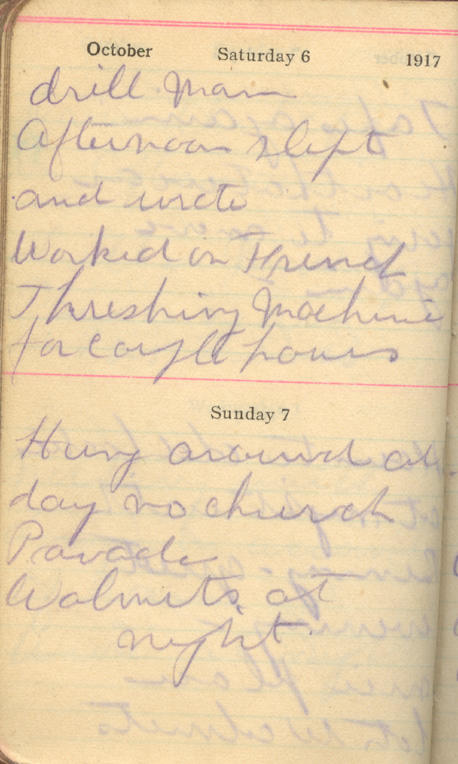 October Saturday 6 1917
drill Morn
Afternoon slept
and wrote
Worked on French
Threshing Machine
for couple hours
Sunday 7
Hung around all
day no church
Parade
Walnuts at
night.